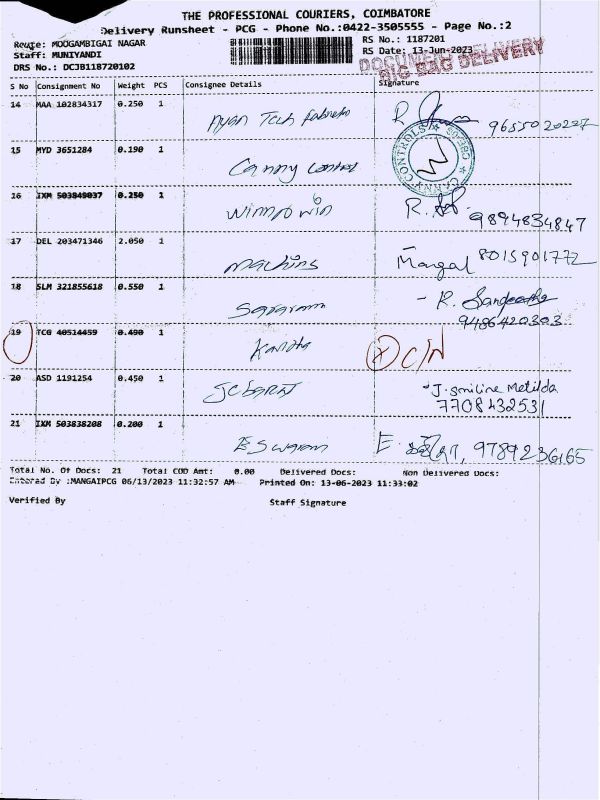 THE PROFESSIONAL COURIERS, COIMBATORE
Delivery Runsheet - PCG - Phone No.:0422-3505555 - Page No.:2
Route: MOOGAMBIGAI NAGAR RS No.: 1187201
Staff: MUNIYANDI RS Date: 13-Jun-2023
DRS No.: DCJB118720102
DOCUMENT DELIVERY
BIG BAG DELIVERY
S No Consignment No Weight PCS Consignee Details Signature
14 MAA 102834317 0.250 1
Ayan Tech R 9655020227
15 MYD 3651284 0.190 1
Canny control CANNY CONTROLS
16 IXM 503849037 0.250 1
winnro win R. 9894834847
17 DEL 203471346 2.050 1
machins Mangal 8015901772
18 SLM 321855618 0.550 1
- R. Sangeetha
9486420303
19 TCG 40514459 0.490 1
Kandha C/N
20 ASD 1191254 0.450 1
J. Smiline Metilda
7708432531
21 IXM 503838208 0.200 1
Eswaram E. 9789236165
Total No. Of Docs: 21 Total COD Amt: 0.00 Delivered Docs: Non Delivered Docs:
Entered By :MANGAIPCG 06/13/2023 11:32:57 AM Printed On: 13-06-2023 11:33:02
Verified By Staff Signature